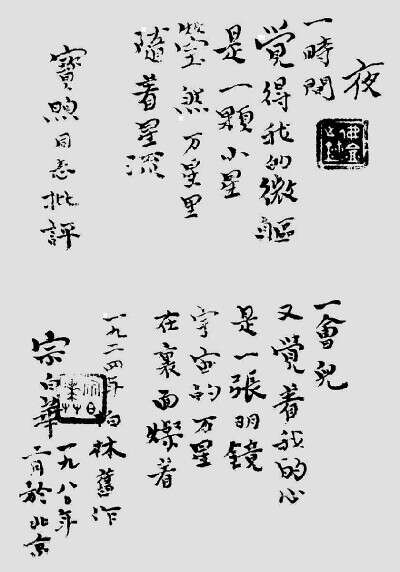 夜
一時間
覺得我的微軀
是一顆小星
瑩然万星里
隨着星流
寶煦同志批評
一會兒
又覺着我的心
是一張明鏡
宇宙的万星
在裏面燦着
一九二四年柏林舊作
宗白華
一九八〇年
二月於北京